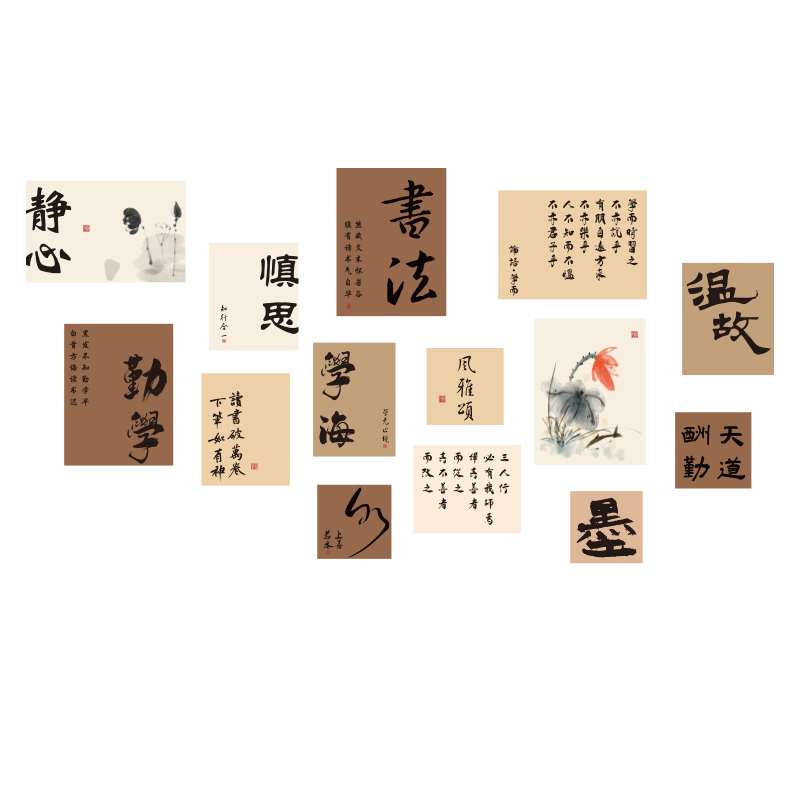 静心
慎思
知行合一
書法
藏文 怀若谷
腹有诗书气自华
學而時習之
不亦説乎
有朋自遠方來
不亦樂乎
人不知而不愠
不亦君子乎
論語·學而
温故
勤學
黑发不知勤学早
白首方悔读书迟
讀書破萬卷
下筆如有神
學海
學无止境
風雅頌
三人行
必有我師焉
擇其善者
而從之
其不善者
而改之
天道
酬勤
水
上善
若水
墨